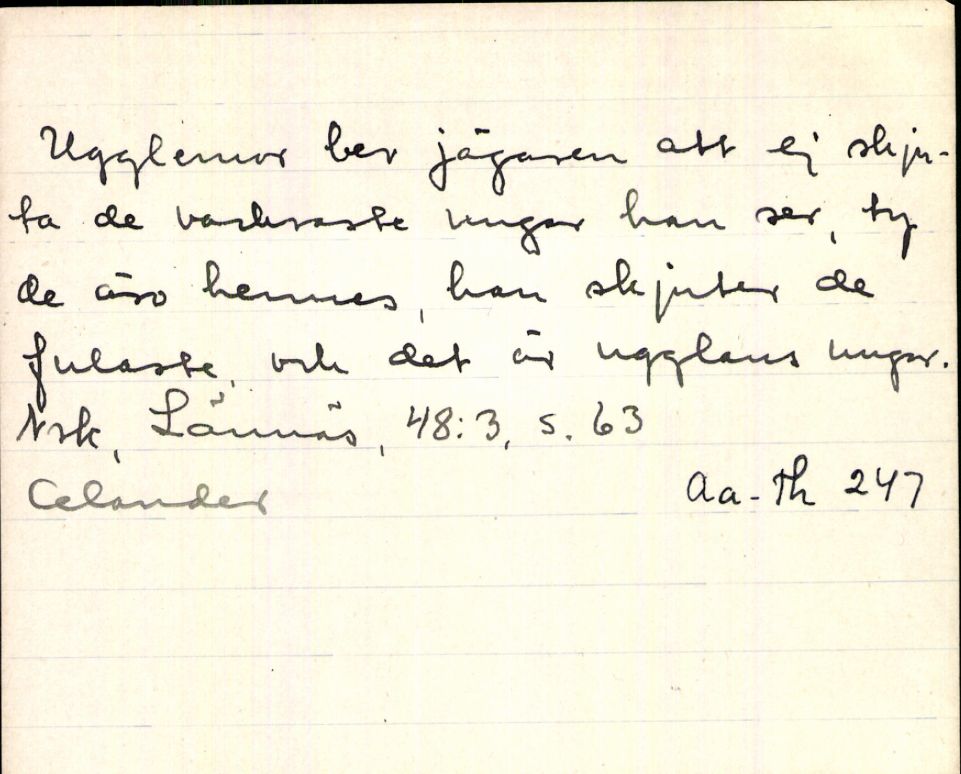 Ugglemor ber jägaren att ej skju-
ta de vackraste ungar han ser, ty
de äro hennes, han skjuter de
fulaste, och det är ugglans ungar.
Nrk, Lännäs, 48:3, s. 63
Celander
Aa-Th 247